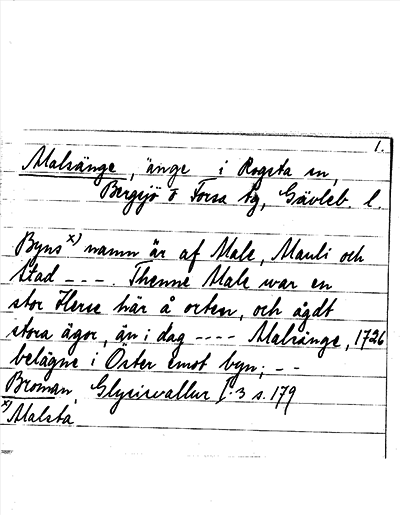 1.
Malsänge, änge i Rogsta sn,
Bergsjö o Forsa tg, Gävleb. l.
Byns x) namn är af Male, Mauli och
Stad - - -. Thenne Male war en
stor Herse här å orten, och ägdt
stora ägor, än i dag - - - - Malsänge, 1726
belägne i Öster emot byn; - -
Broman, Glysisvallur f. 3 s. 179
x) Malsta